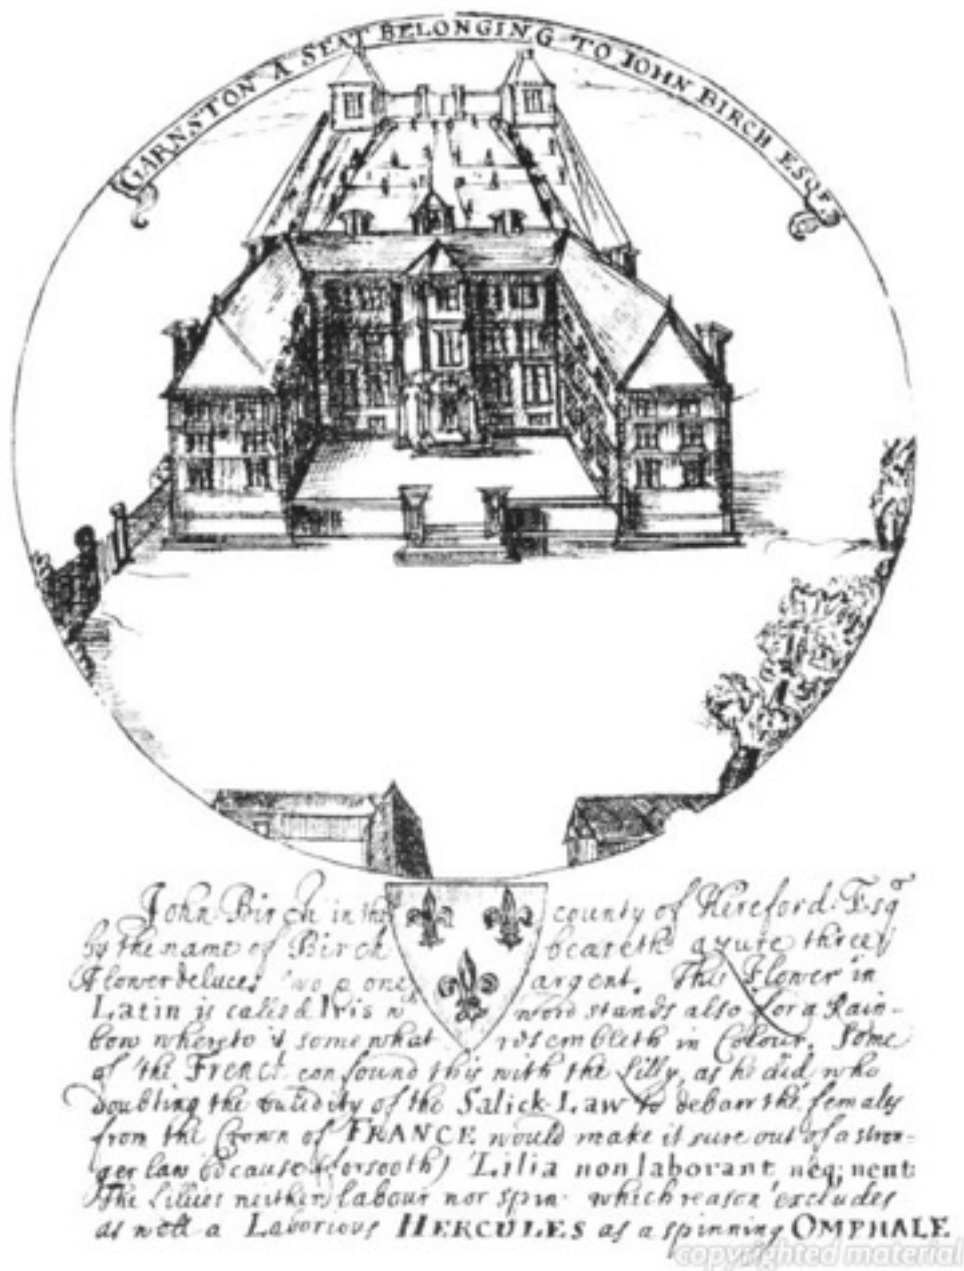 GARNSTON A SEAT BELONGING TO JOHN BIRCH ESQR.
John Birch in the county of Hereford Esqr
by the name of Birch beareth azure three
Flowerdeluces two a one argent. This Flower in
Latin is called Iris word stands also for a Rain-
bow whereto it somewhat resembleth in Colour. Some
of the FRENCH confound this with the Lilly, as he did, who
doubting the validity of the Salick-Law to debarr the females
from the Crown of FRANCE would make it sure out of a stron-
ger law because (forsooth) Lilia non laborant neq; nent
The Lillies neither labour nor spin which reason excludes
as well a Laborious HERCULES as a spinning OMPHALE
copyrighted material